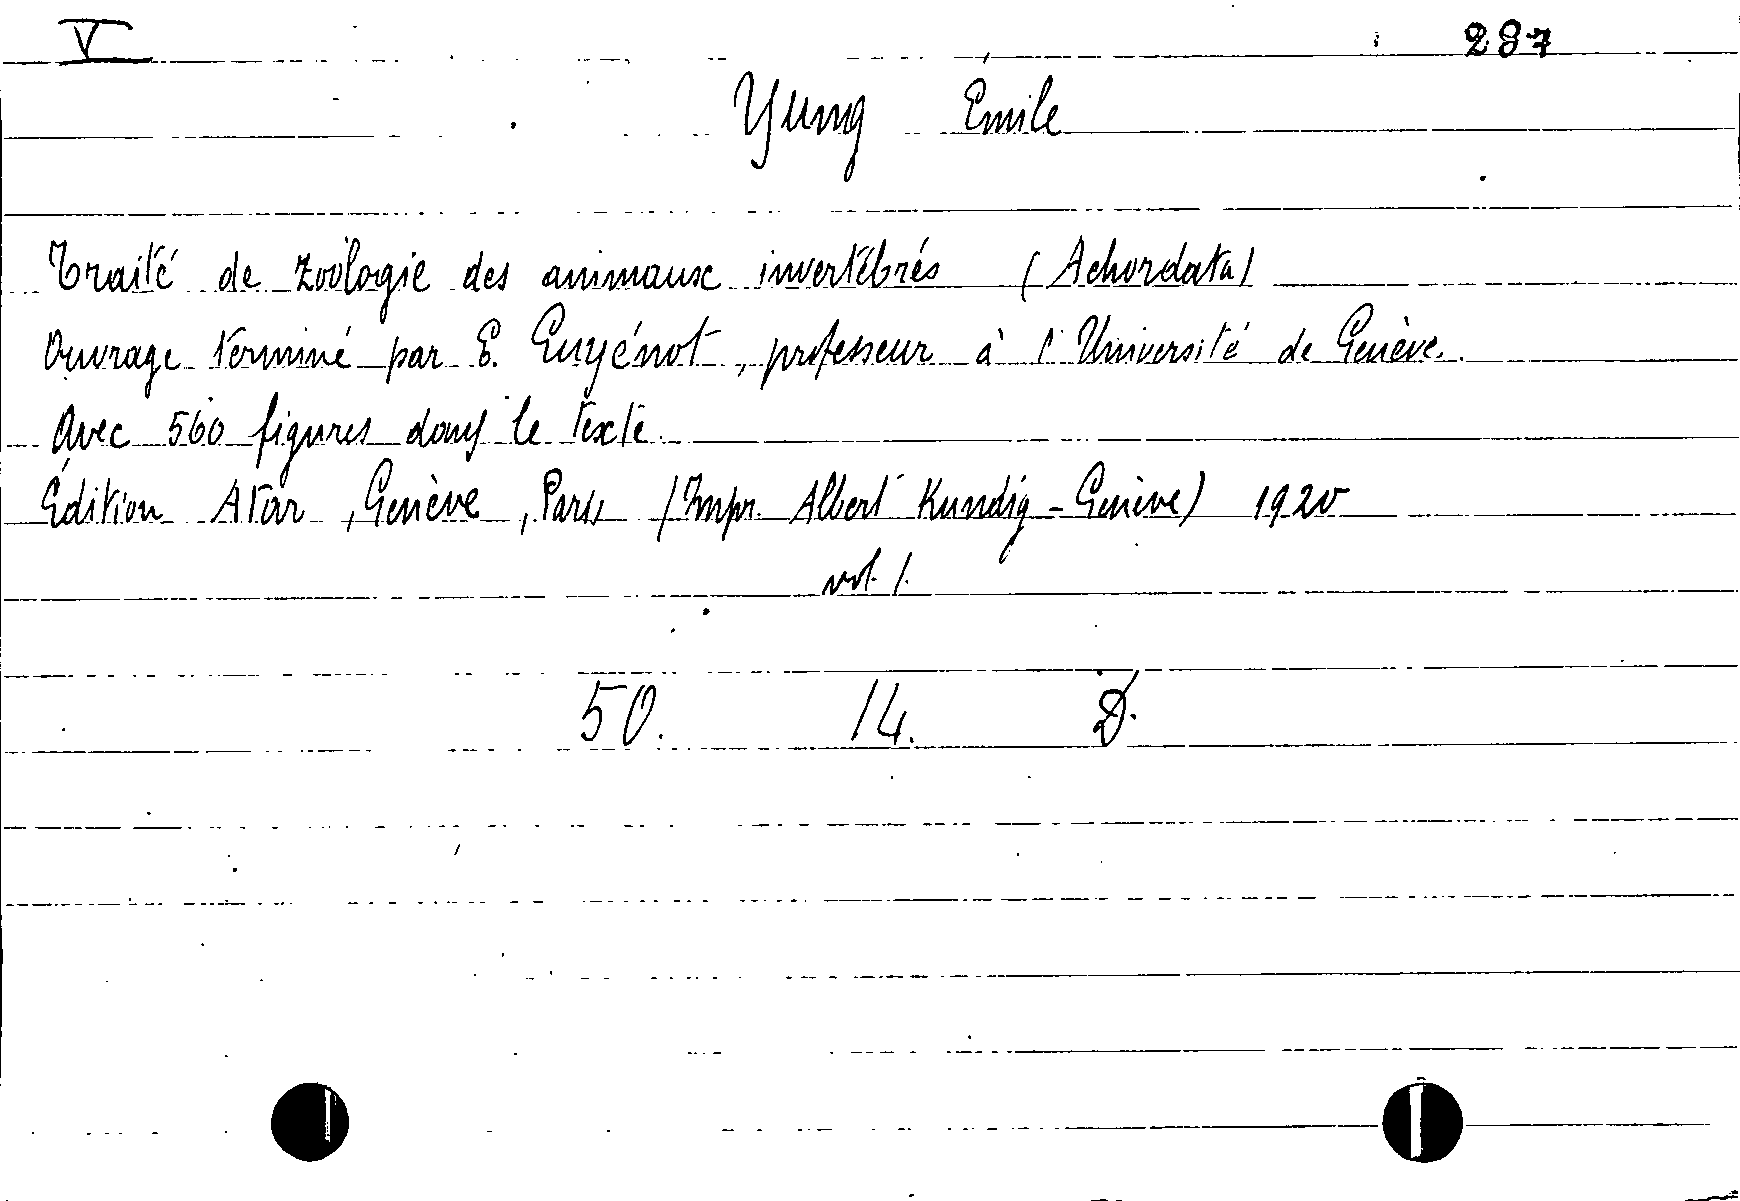 V 287
Yung Émile
Traité de zoologie des animaux invertébrés (Achordata)
Ouvrage terminé par E. Guyénot, professeur à l'Université de Genève.
Avec 560 figures dans le texte.
Édition Atar, Genève, Paris (Impr. Albert Kundig - Genève) 1920
vol. 1.
50. 14. D.